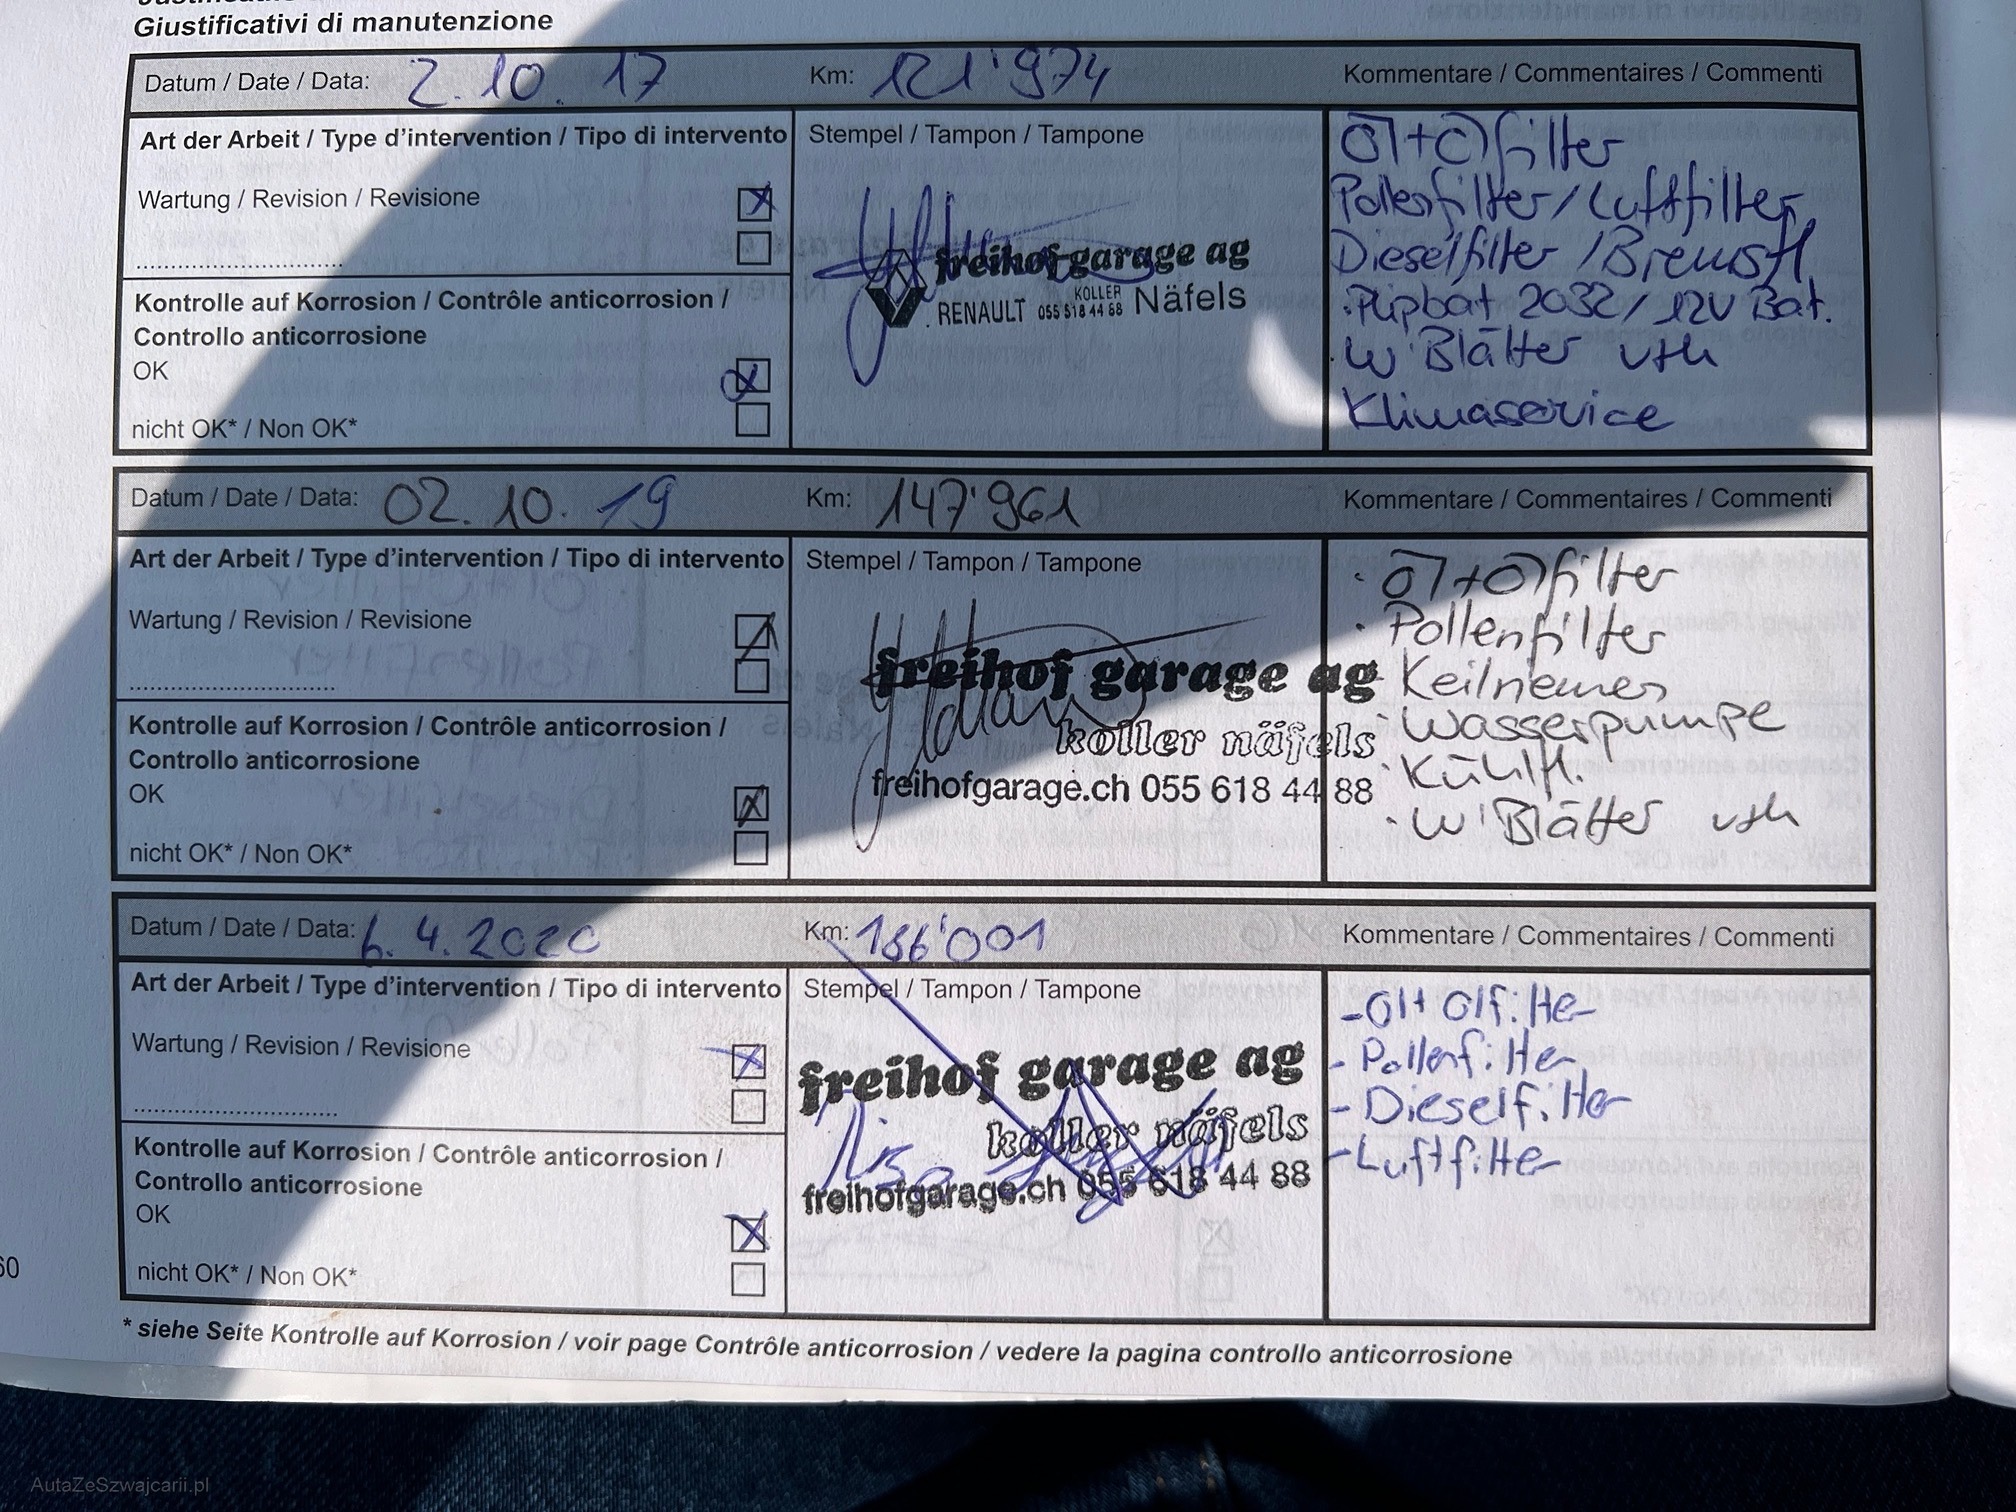 Giustificativi di manutenzione
Datum / Date / Data: 2.10.17 Km: 121'974 Kommentare / Commentaires / Commenti
Art der Arbeit / Type d'intervention / Tipo di intervento Stempel / Tampon / Tampone
Öl+Ölfilter
Wartung / Revision / Revisione
Pollenfilter / Luftfilter
freihof garage ag
Dieselfilter / Bremsfl.
RENAULT KOLLER 055 618 44 88 Näfels
Kontrolle auf Korrosion / Contrôle anticorrosion /
Controllo anticorrosione
Flipbat 2032 / 12V Bat.
OK
W'Blätter vth
nicht OK* / Non OK*
Klimaservice
Datum / Date / Data: 02.10.19 Km: 147'961 Kommentare / Commentaires / Commenti
Art der Arbeit / Type d'intervention / Tipo di intervento Stempel / Tampon / Tampone
· Öl+Ölfilter
Wartung / Revision / Revisione
· Pollenfilter
freihof garage ag
Keilriemen
koller näfels
· Wasserpumpe
freihofgarage.ch 055 618 44 88
· Kühlfl.
Kontrolle auf Korrosion / Contrôle anticorrosion /
Controllo anticorrosione
OK
· W'Blätter vth
nicht OK* / Non OK*
Datum / Date / Data: 6.4.2020 Km: 186'001 Kommentare / Commentaires / Commenti
Art der Arbeit / Type d'intervention / Tipo di intervento Stempel / Tampon / Tampone
- Öl+ Ölfilter
Wartung / Revision / Revisione
- Pollenfilter
freihof garage ag
- Dieselfilter
koller näfels
- Luftfilter
freihofgarage.ch 055 618 44 88
Kontrolle auf Korrosion / Contrôle anticorrosion /
Controllo anticorrosione
OK
nicht OK* / Non OK*
60
* siehe Seite Kontrolle auf Korrosion / voir page Contrôle anticorrosion / vedere la pagina controllo anticorrosione
AutaZeSzwajcarii.pl